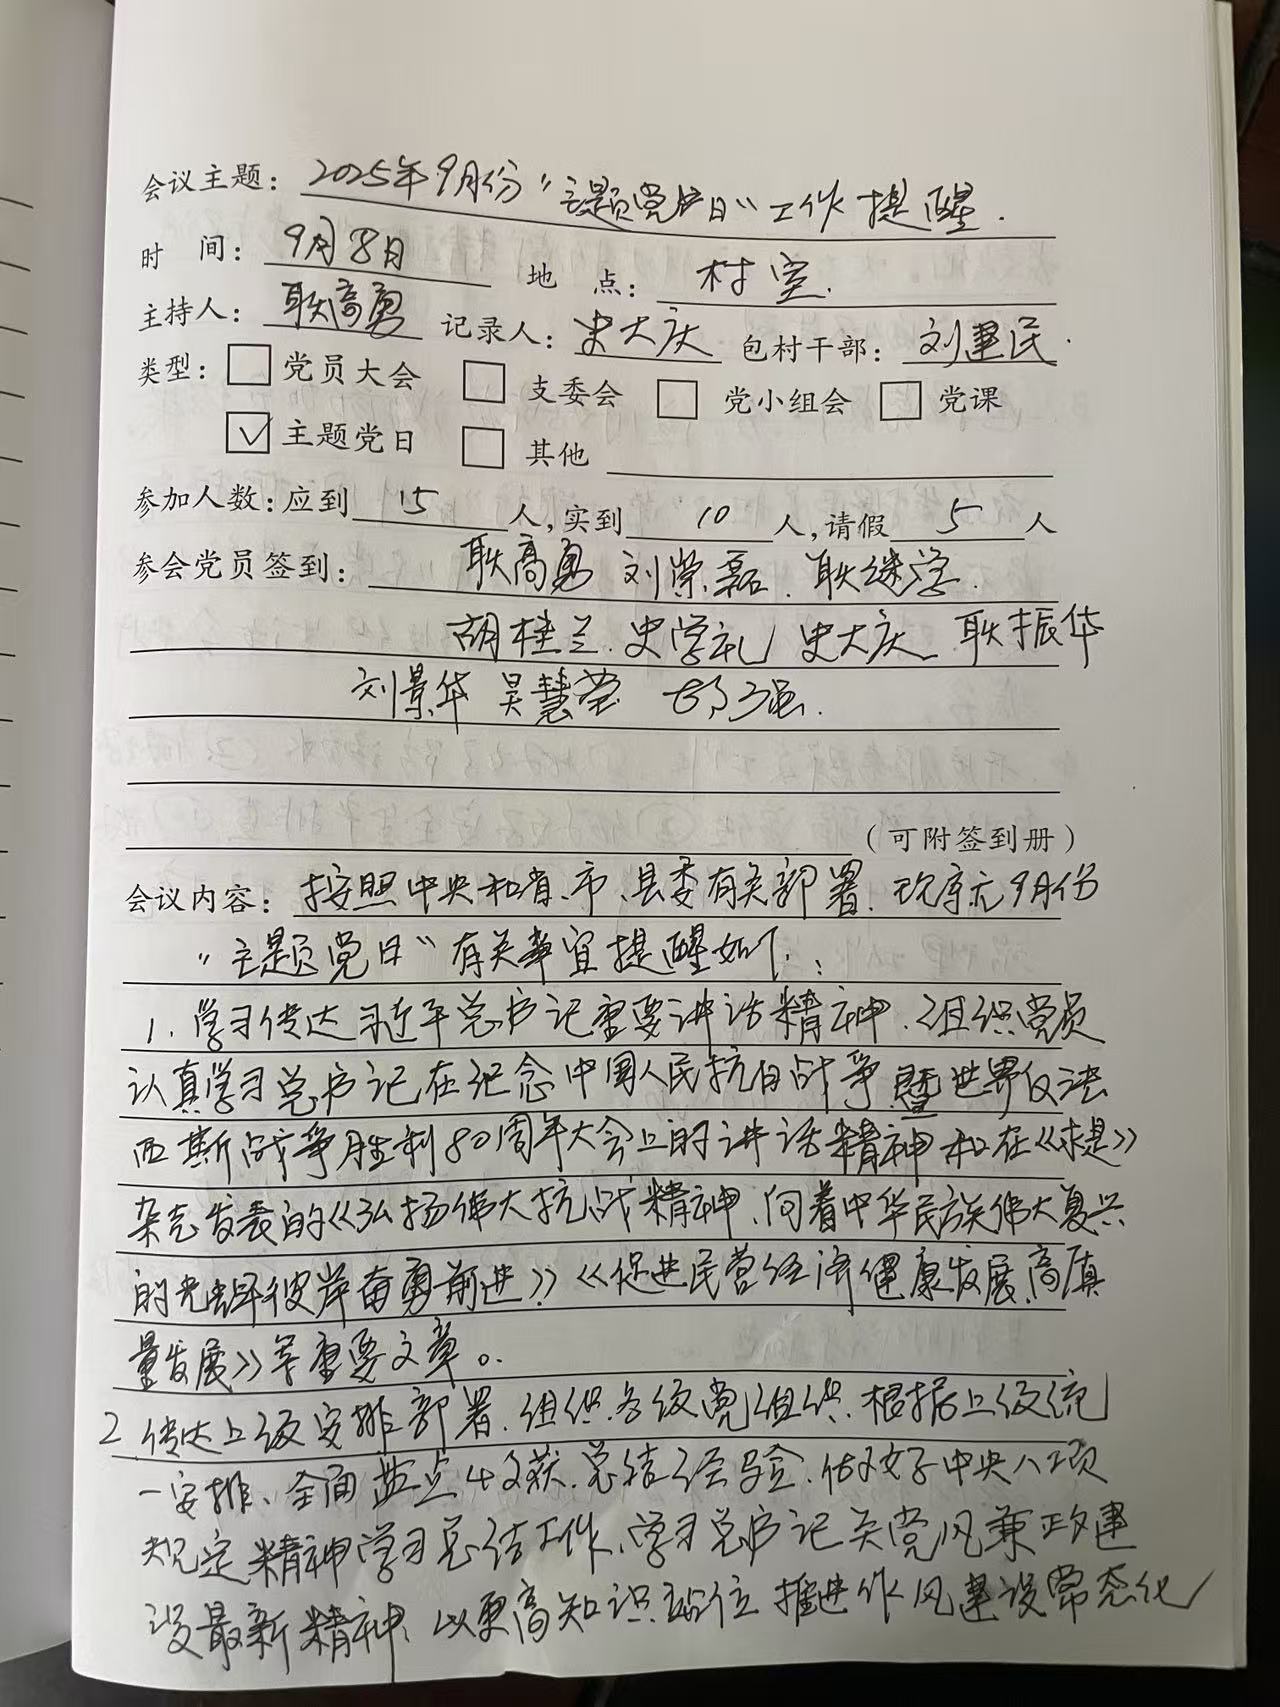 会议主题：2025年9月份“主题党日”工作提醒.
时 间：9月8日 地 点：村室.
主持人：耿高勇 记录人：史大庆 包村干部：刘建民.
类型：□党员大会 □支委会 □党小组会 □党课
☑主题党日 □其他
参加人数：应到 15 人,实到 10 人,请假 5 人
参会党员签到：耿高勇 刘荣磊. 耿继学.
胡桂兰. 史学礼 史大庆 耿振华
刘景华 吴慧莹
（可附签到册）
会议内容：按照中央和省、市、县委有关部署. 现将 9月份
“主题党日”有关事宜提醒如下：
1. 学习传达习近平总书记重要讲话精神. 组织党员
认真学习总书记在纪念中国人民抗日战争暨世界反法
西斯战争胜利80周年大会上的讲话精神和在《求是》
杂志发表的《弘扬伟大抗战精神、向着中华民族伟大复兴
的光辉彼岸奋勇前进》《促进民营经济健康发展、高质
量发展》等重要文章。
2. 传达上级安排部署. 组织各级党组织. 根据上级统
一安排、全面盘点收获. 总结经验. 做好中央八项
规定精神学习总结工作、学习总书记关党风廉政建
设最新精神、以更高知识站位推进作风建设常态化